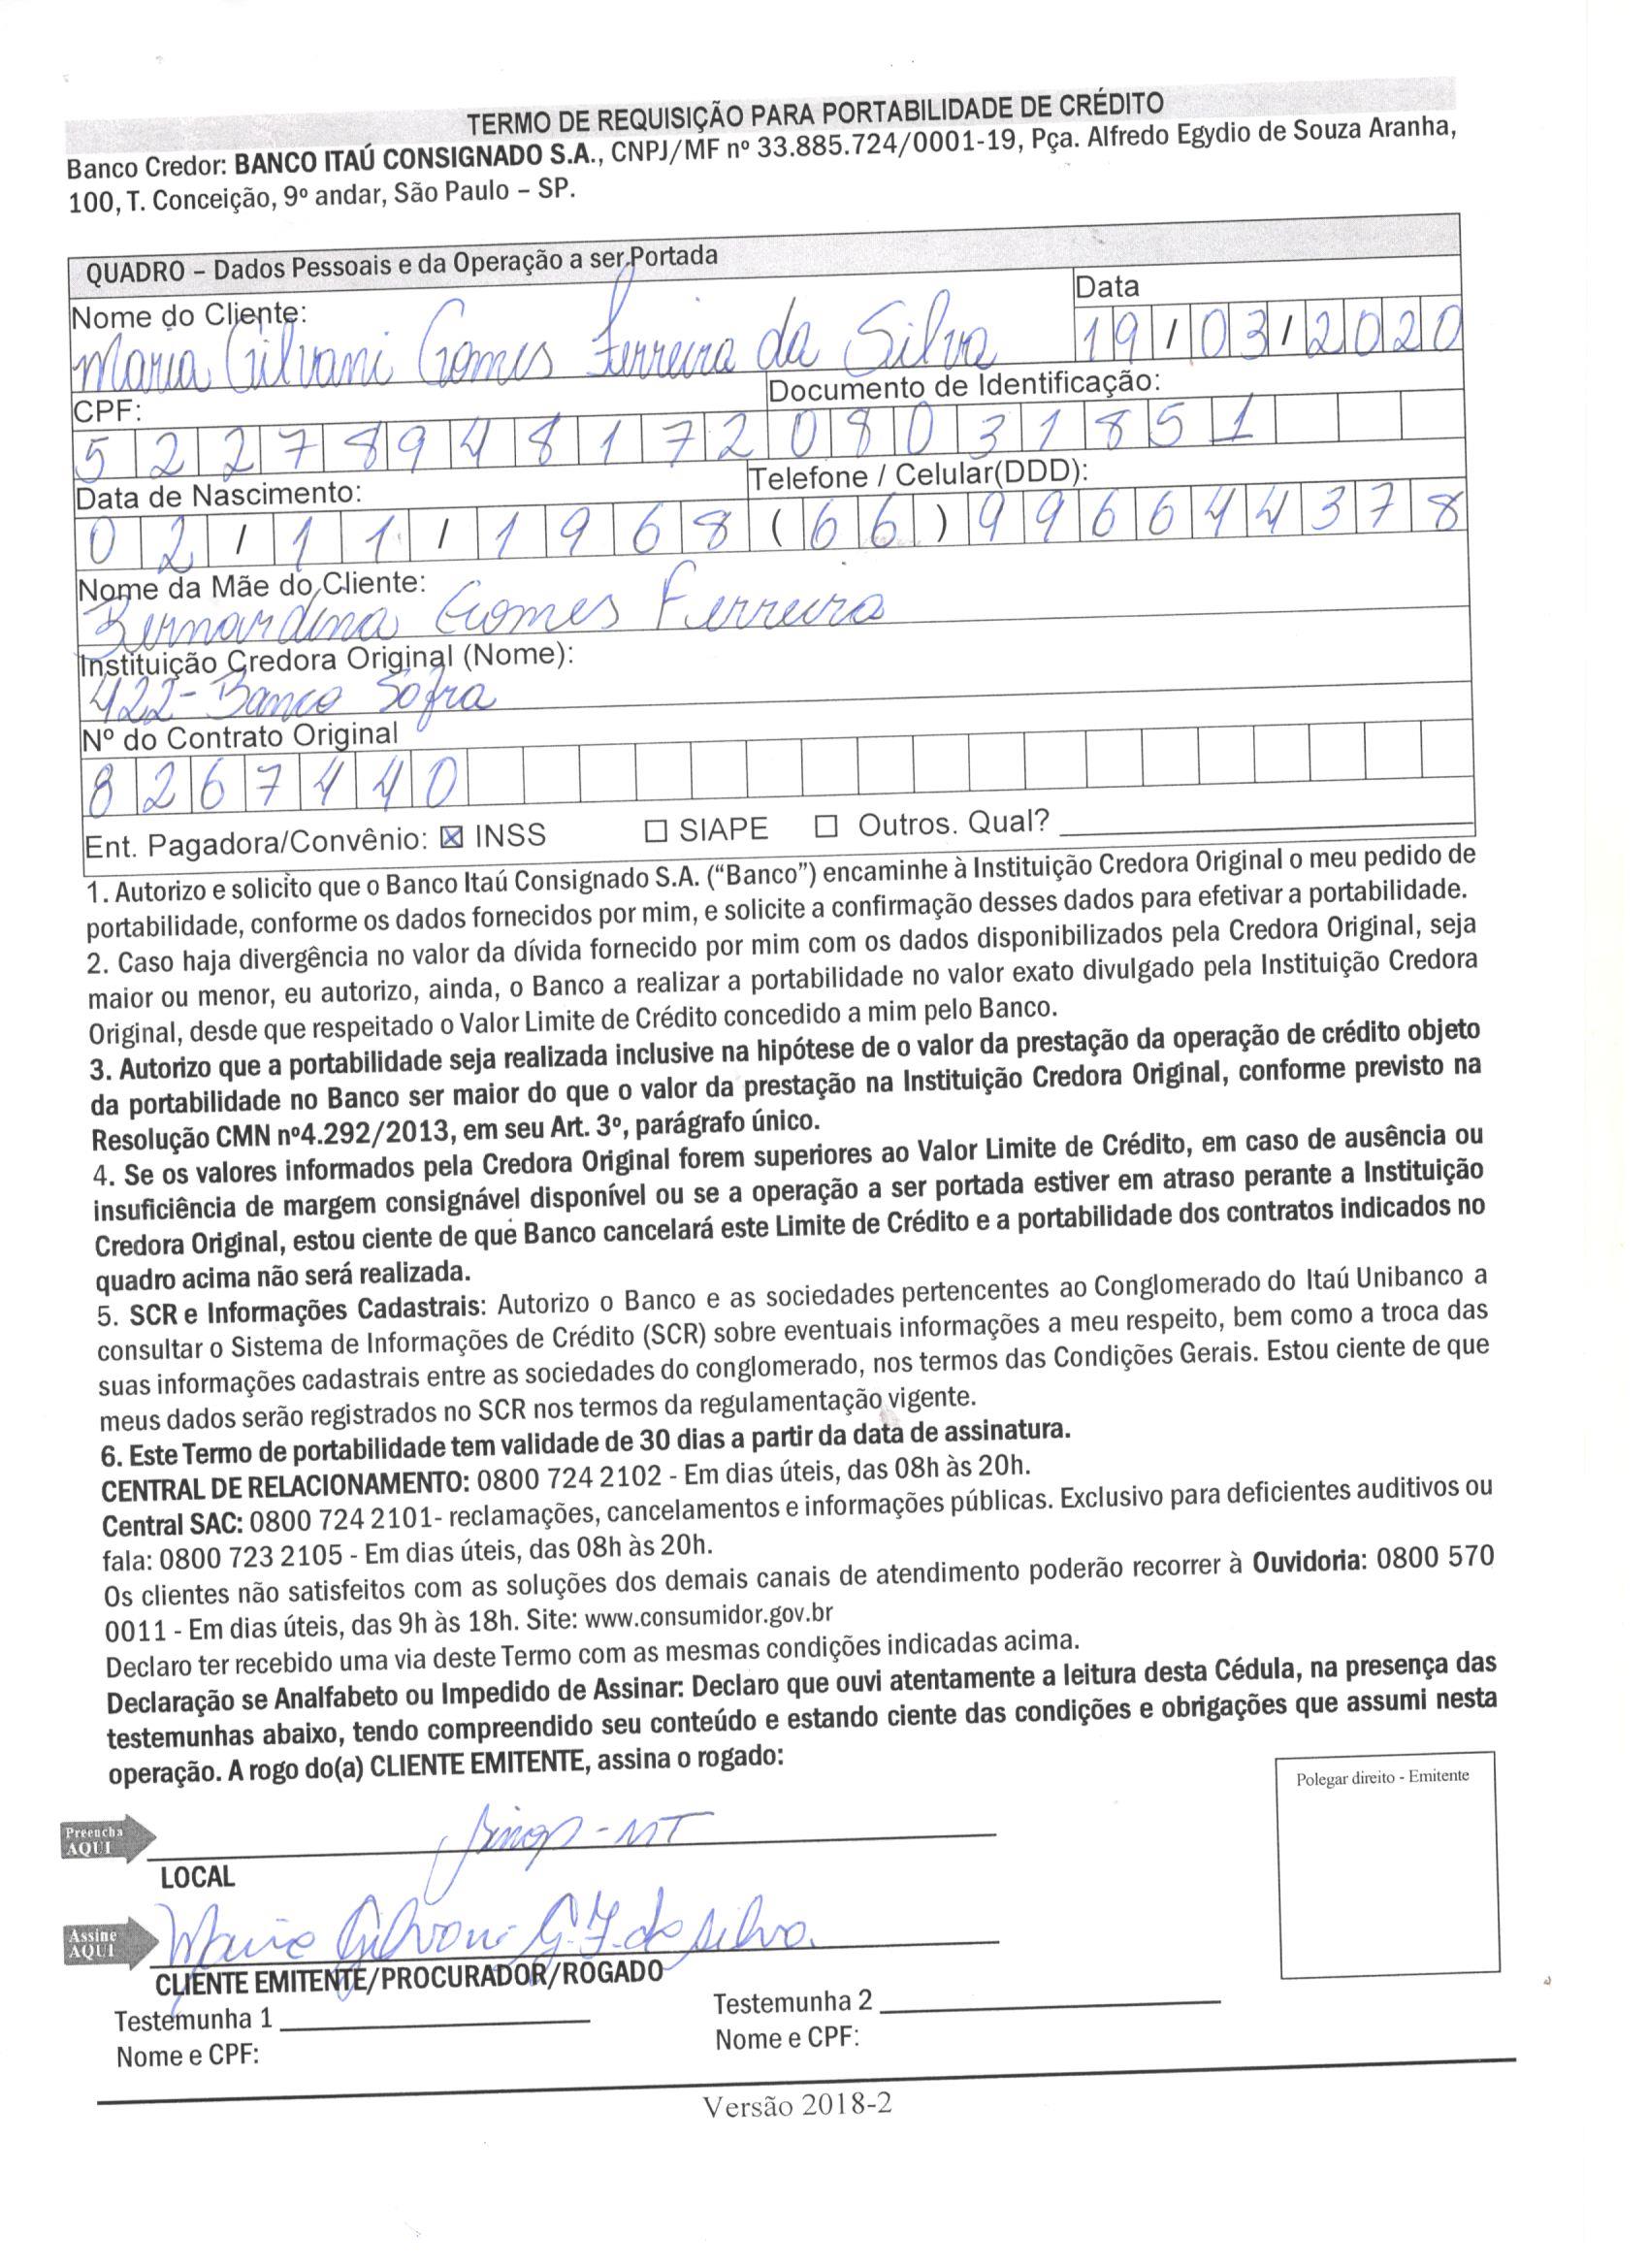 TERMO DE REQUISIÇÃO PARA PORTABILIDADE DE CRÉDITO
Banco Credor: BANCO ITAÚ CONSIGNADO S.A., CNPJ/MF nº 33.885.724/0001-19, Pça. Alfredo Egydio de Souza Aranha,
100, T. Conceição, 9º andar, São Paulo – SP.
QUADRO – Dados Pessoais e da Operação a ser Portada
Nome do Cliente: Data
Maria Gilvani Gomes Ferreira da Silva 19/03/2020
CPF: Documento de Identificação:
52278948172 08031851
Data de Nascimento: Telefone / Celular(DDD):
02/11/1968 (66) 996644378
Nome da Mãe do Cliente:
Bernardina Gomes Ferreira
Instituição Credora Original (Nome):
422- Banco Safra
Nº do Contrato Original
8267440
Ent. Pagadora/Convênio: ☒ INSS ☐ SIAPE ☐ Outros. Qual?
1. Autorizo e solicito que o Banco Itaú Consignado S.A. (“Banco”) encaminhe à Instituição Credora Original o meu pedido de
portabilidade, conforme os dados fornecidos por mim, e solicite a confirmação desses dados para efetivar a portabilidade.
2. Caso haja divergência no valor da dívida fornecido por mim com os dados disponibilizados pela Credora Original, seja
maior ou menor, eu autorizo, ainda, o Banco a realizar a portabilidade no valor exato divulgado pela Instituição Credora
Original, desde que respeitado o Valor Limite de Crédito concedido a mim pelo Banco.
3. Autorizo que a portabilidade seja realizada inclusive na hipótese de o valor da prestação da operação de crédito objeto
da portabilidade no Banco ser maior do que o valor da prestação na Instituição Credora Original, conforme previsto na
Resolução CMN nº4.292/2013, em seu Art. 3º, parágrafo único.
4. Se os valores informados pela Credora Original forem superiores ao Valor Limite de Crédito, em caso de ausência ou
insuficiência de margem consignável disponível ou se a operação a ser portada estiver em atraso perante a Instituição
Credora Original, estou ciente de que Banco cancelará este Limite de Crédito e a portabilidade dos contratos indicados no
quadro acima não será realizada.
5. SCR e Informações Cadastrais: Autorizo o Banco e as sociedades pertencentes ao Conglomerado do Itaú Unibanco a
consultar o Sistema de Informações de Crédito (SCR) sobre eventuais informações a meu respeito, bem como a troca das
suas informações cadastrais entre as sociedades do conglomerado, nos termos das Condições Gerais. Estou ciente de que
meus dados serão registrados no SCR nos termos da regulamentação vigente.
6. Este Termo de portabilidade tem validade de 30 dias a partir da data de assinatura.
CENTRAL DE RELACIONAMENTO: 0800 724 2102 - Em dias úteis, das 08h às 20h.
Central SAC: 0800 724 2101- reclamações, cancelamentos e informações públicas. Exclusivo para deficientes auditivos ou
fala: 0800 723 2105 - Em dias úteis, das 08h às 20h.
Os clientes não satisfeitos com as soluções dos demais canais de atendimento poderão recorrer à Ouvidoria: 0800 570
0011 - Em dias úteis, das 9h às 18h. Site: www.consumidor.gov.br
Declaro ter recebido uma via deste Termo com as mesmas condições indicadas acima.
Declaração se Analfabeto ou Impedido de Assinar: Declaro que ouvi atentamente a leitura desta Cédula, na presença das
testemunhas abaixo, tendo compreendido seu conteúdo e estando ciente das condições e obrigações que assumi nesta
operação. A rogo do(a) CLIENTE EMITENTE, assina o rogado:
Polegar direito - Emitente
Preencha
AQUI
Sinop - MT
LOCAL
Assine
AQUI
Maria Gilvani G. F. da Silva.
CLIENTE EMITENTE/PROCURADOR/ROGADO
Testemunha 1 Testemunha 2
Nome e CPF: Nome e CPF:
Versão 2018-2